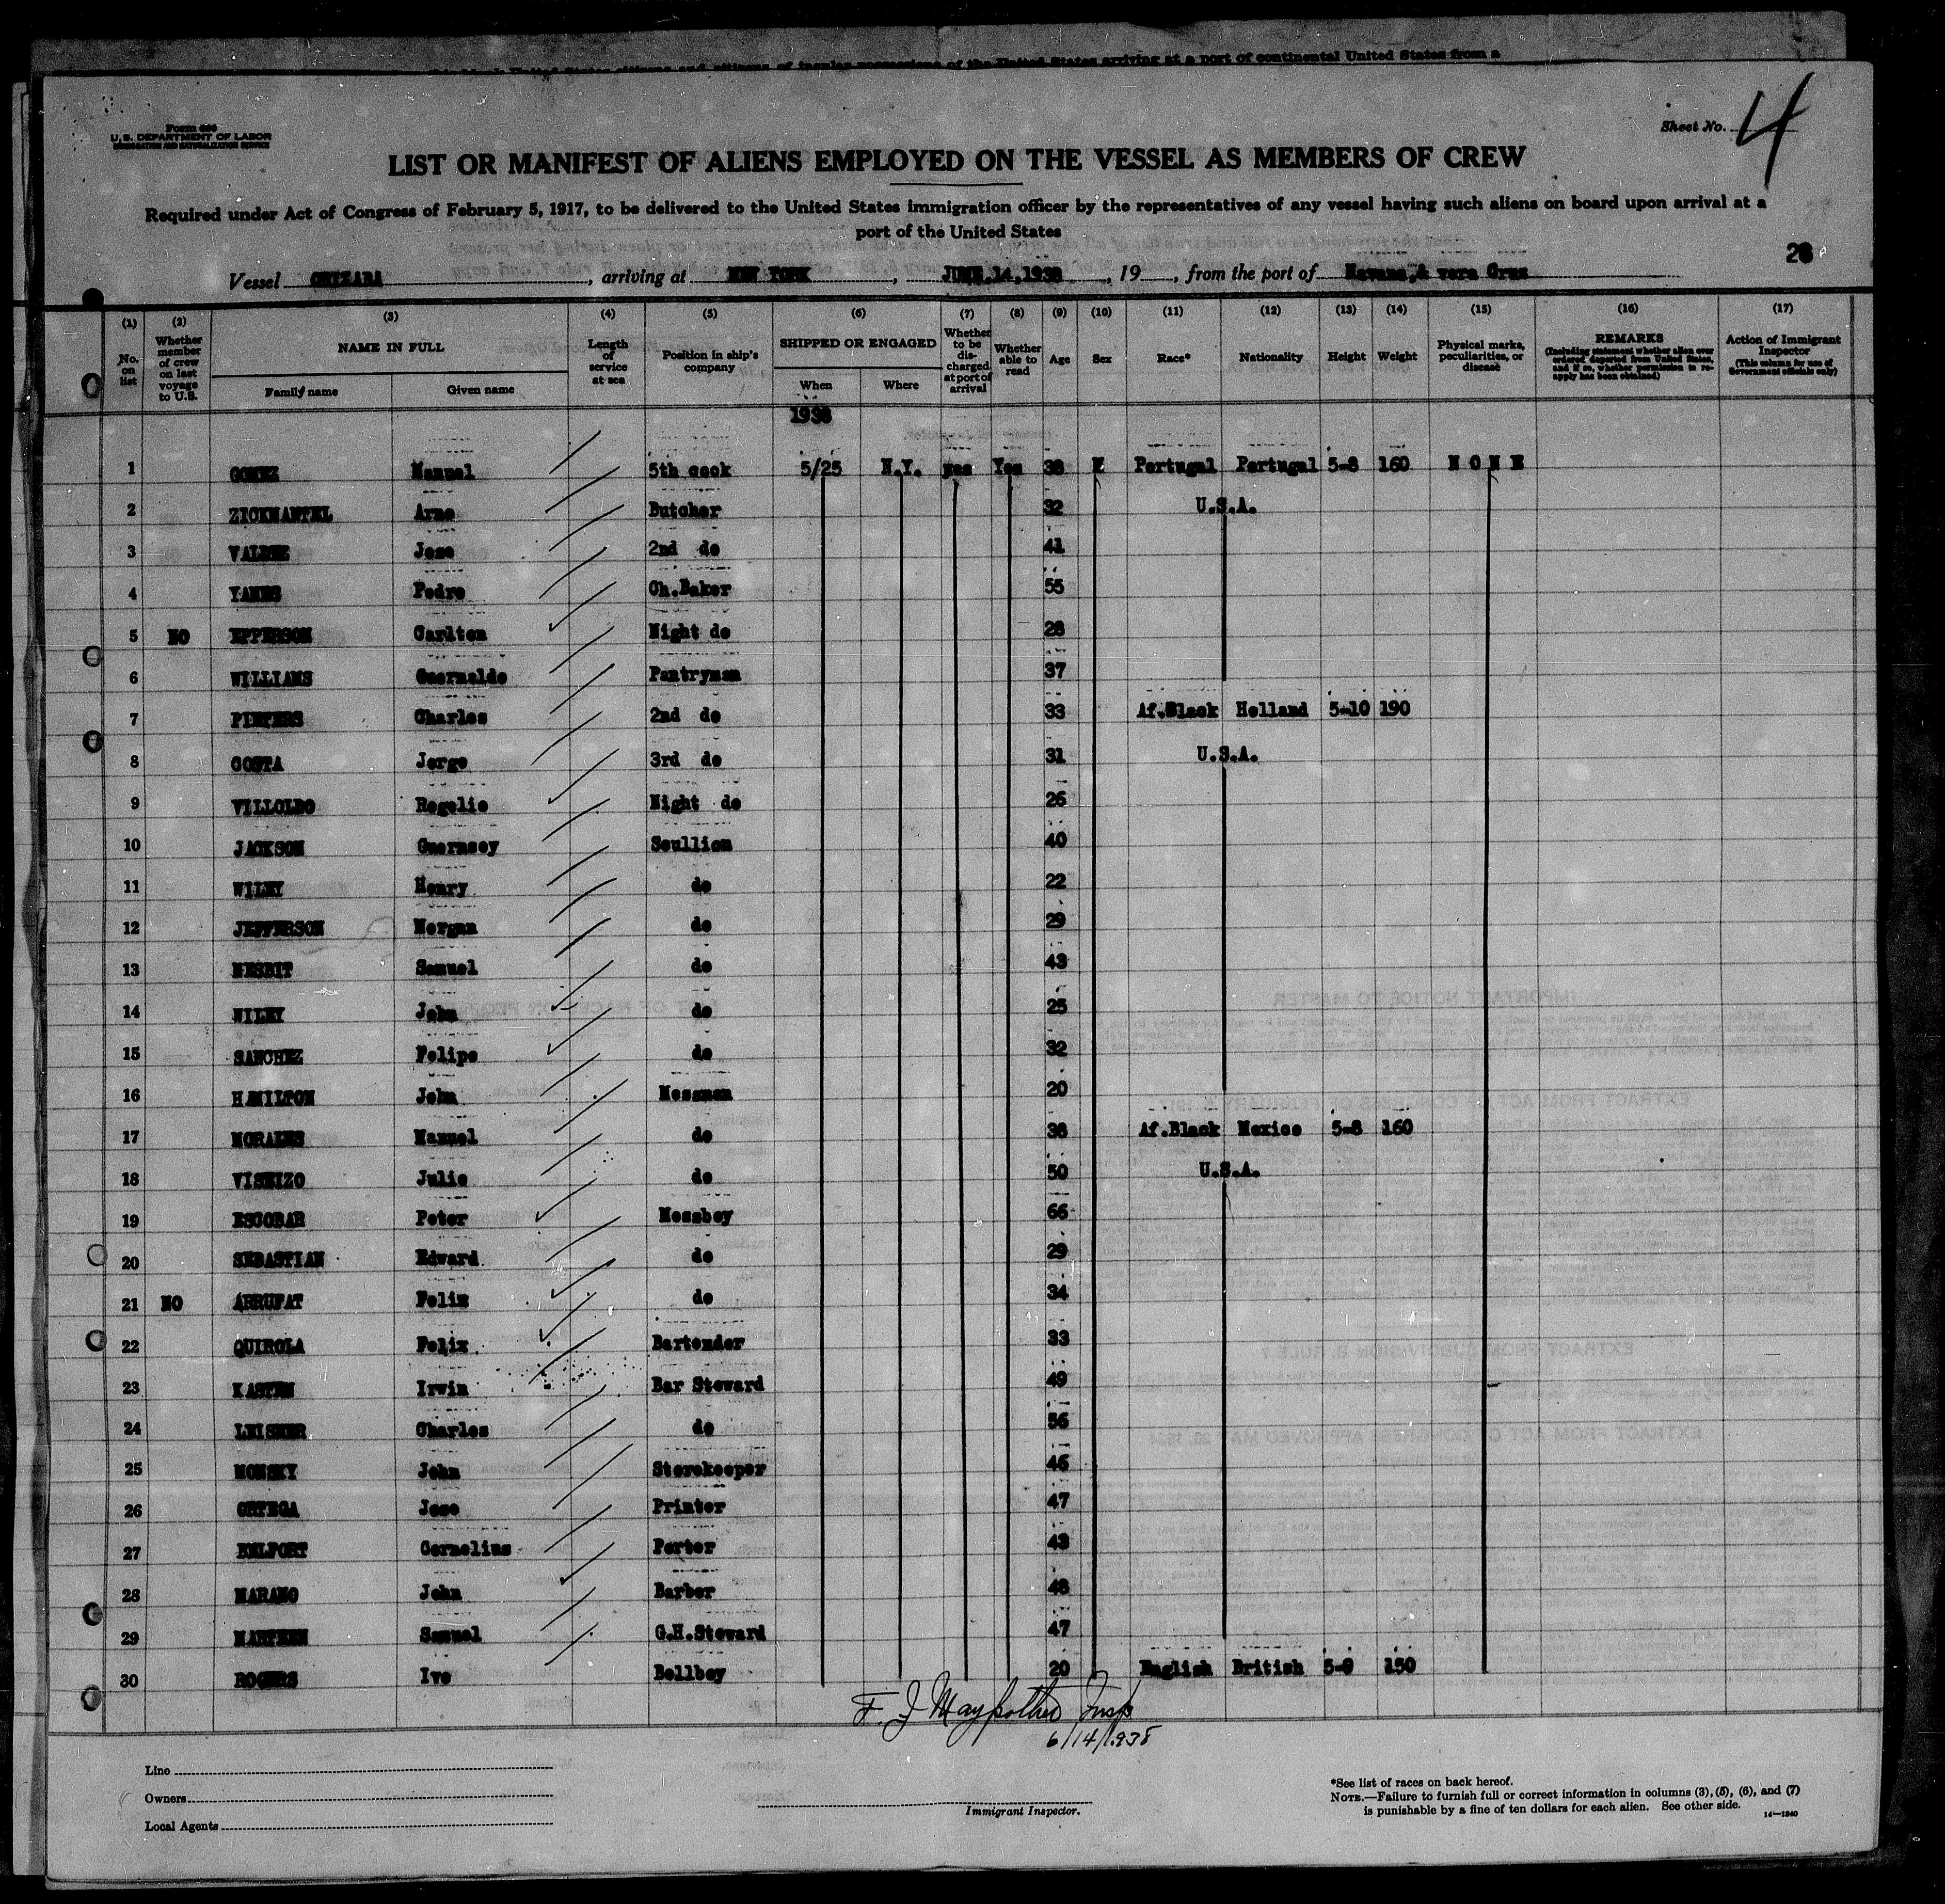 this blank United States citizens and citizens of insular possessions of the United States arriving at a port of continental United States from a
Form 680
U.S. DEPARTMENT OF LABOR
IMMIGRATION AND NATURALIZATION SERVICE
Sheet No. 4
LIST OR MANIFEST OF ALIENS EMPLOYED ON THE VESSEL AS MEMBERS OF CREW
Required under Act of Congress of February 5, 1917, to be delivered to the United States immigration officer by the representatives of any vessel having such aliens on board upon arrival at a
port of the United States
28
Vessel ORIZABA, arriving at NEW YORK, JUNE 14, 1938, 19, from the port of Havana, & vera Cruz
(1) No. on list
(2) Whether member of crew on last voyage to U.S.
(3) NAME IN FULL Family name Given name
(4) Length of service at sea
(5) Position in ship's company
(6) SHIPPED OR ENGAGED When Where
(7) Whether to be discharged at port of arrival
(8) Whether able to read
(9) Age
(10) Sex
(11) Race*
(12) Nationality
(13) Height
(14) Weight
(15) Physical marks, peculiarities, or disease
(16) REMARKS (Including statement whether alien ever ordered deported from United States, and if so, whether permission to reapply has been obtained)
(17) Action of Immigrant Inspector (This column for use of Government officials only)
1938
1 GOMEZ Manuel 5th cook 5/25 N.Y. yes Yes 38 M Portugal Portugal 5-8 160 NONE
2 ZICKMANTEL Arno Butcher 32 U.S.A.
3 VALDEZ Jose 2nd do 41
4 YANES Pedro Ch.Baker 55
5 NO EPPERSON Carlton Night do 28
6 WILLIAMS Pantryman 37
7 PIETERS Charles 2nd do 33 Af.Black Holland 5-10 190
8 COSTA Jorge 3rd do 31 U.S.A.
9 VILLOLDO Rogelio Night do 26
10 JACKSON Guernsey Scullion 40
11 WILEY Henry do 22
12 JEFFERSON Morgan do 29
13 NESBIT Samuel do 43
14 WILEY John do 25
15 SANCHEZ Felipe do 32
16 HAMILTON John Messman 20
17 MORALES Manuel do 38 Af.Black Mexico 5-8 160
18 VISKIZO Julio do 50 U.S.A.
19 ESCOBAR Peter Messboy 66
20 SEBASTIAN Edward do 29
21 NO ARRUFAT Felix do 34
22 QUIROLA Felix Bartender 33
23 KASTEN Irwin Bar Steward 49
24 LEISNER Charles do 56
25 MONSKY John Storekeeper 46
26 ORTEGA Jose Printer 47
27 BELFORT Cornelius Porter 43
28 MARANO John Barber 48
29 Samuel G.H.Steward 47
30 ROGERS Ivo Bellboy 20 English British 5-9 150
F. J. Maypother Insp
6/14/1938
Line
Owners
Local Agents
Immigrant Inspector.
*See list of races on back hereof.
NOTE.—Failure to furnish full or correct information in columns (3), (5), (6), and (7)
is punishable by a fine of ten dollars for each alien. See other side.
14—1240